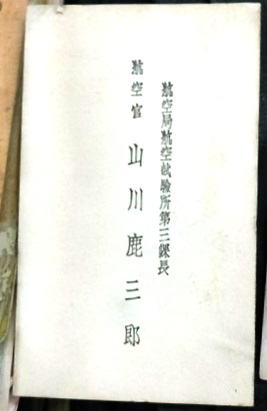 航空局航空試驗所第三課長
航空官 山川鹿三郎